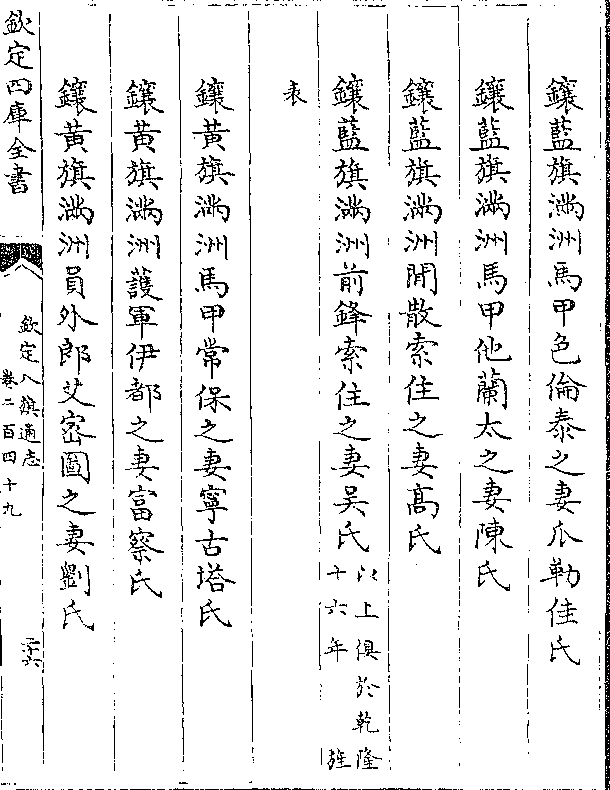 鑲藍旗滿洲馬甲色倫泰之妻瓜勒佳氏
鑲藍旗滿洲馬甲他蘭太之妻陳氏
鑲藍旗滿洲閒散索住之妻高氏
鑲藍旗滿洲前鋒索住之妻吴氏以上俱於乾隆
十六年旌
表
鑲黃旗滿洲馬甲常保之妻寧古塔氏
鑲黃旗滿洲護軍伊都之妻富察氏
鑲黃旗滿洲員外郎艾宻圖之妻劉氏
欽定四庫全書
欽定八旗通志
卷二百四十九
二十六